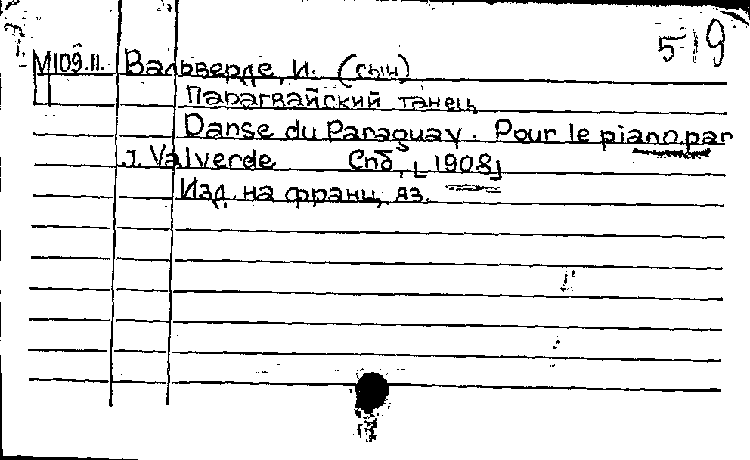 519
М109.11. Вальверде, И. (сын)
Парагвайский танец
Danse du Paraguay. Pour le piano par
J. Valverde Спб, [1908]
Изд. на франц. яз.